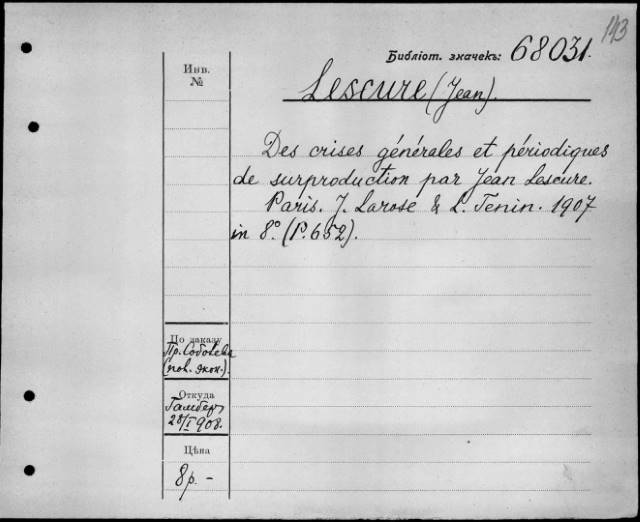 143
Библіот. значекъ: 68031.
Инв.
№
Lescure (Jean).
Des crises générales et périodiques
de surproduction par Jean Lescure.
Paris. J. Larose & L. Tenin. 1907
in 8° (P. 652).
По заказу
Пр. Соболева
(пол. экон.).
Откуда
28/I 908.
Цѣна
8 р. -